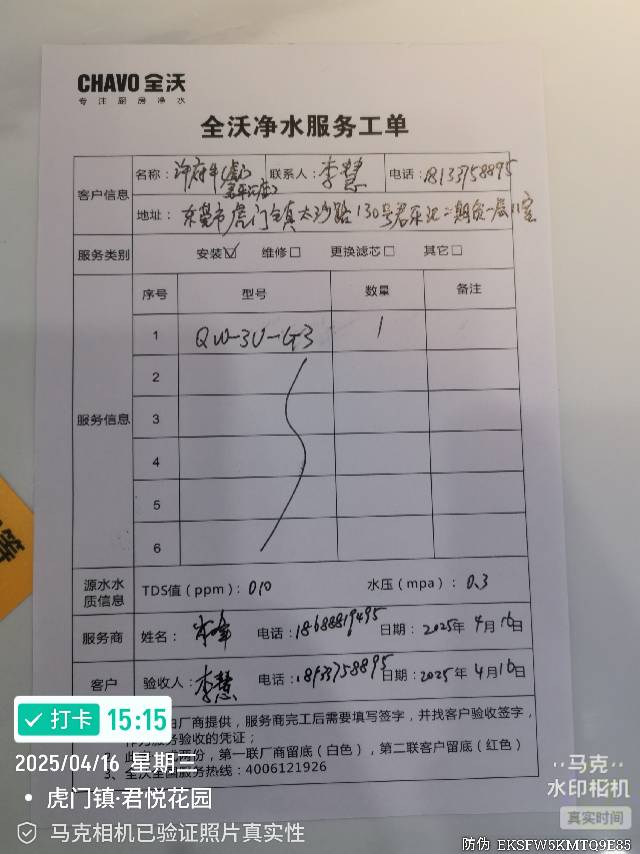 CHAVO 全沃
专注厨房净水
全沃净水服务工单
客户信息
名称：许府牛（虎门
联系人：李慧
电话：18133758895
地址：东莞市虎门镇太沙路130号君乐汇二期负一层11室
服务类别 安装☑ 维修☐ 更换滤芯☐ 其它☐
服务信息
序号 型号 数量 备注
1 QW-3U-G3 1
2
3
4
5
6
源水水质信息
TDS值（ppm）：010 水压（mpa）：0.3
服务商 姓名： 电话：18688819495 日期：2025年4月16日
客户 验收人：李慧 电话：18133758895 日期：2025年4月16日
由厂商提供，服务商完工后需要填写签字，并找客户验收签字，
作为服务验收的凭证；
两份，第一联厂商留底（白色），第二联客户留底（红色）
3、全沃全国服务热线：4006121926
打卡 15:15
2025/04/16 星期三
虎门镇·君悦花园
马克相机已验证照片真实性
马克
水印相机
真实时间
防伪 EKSFW5KMTQ9E85